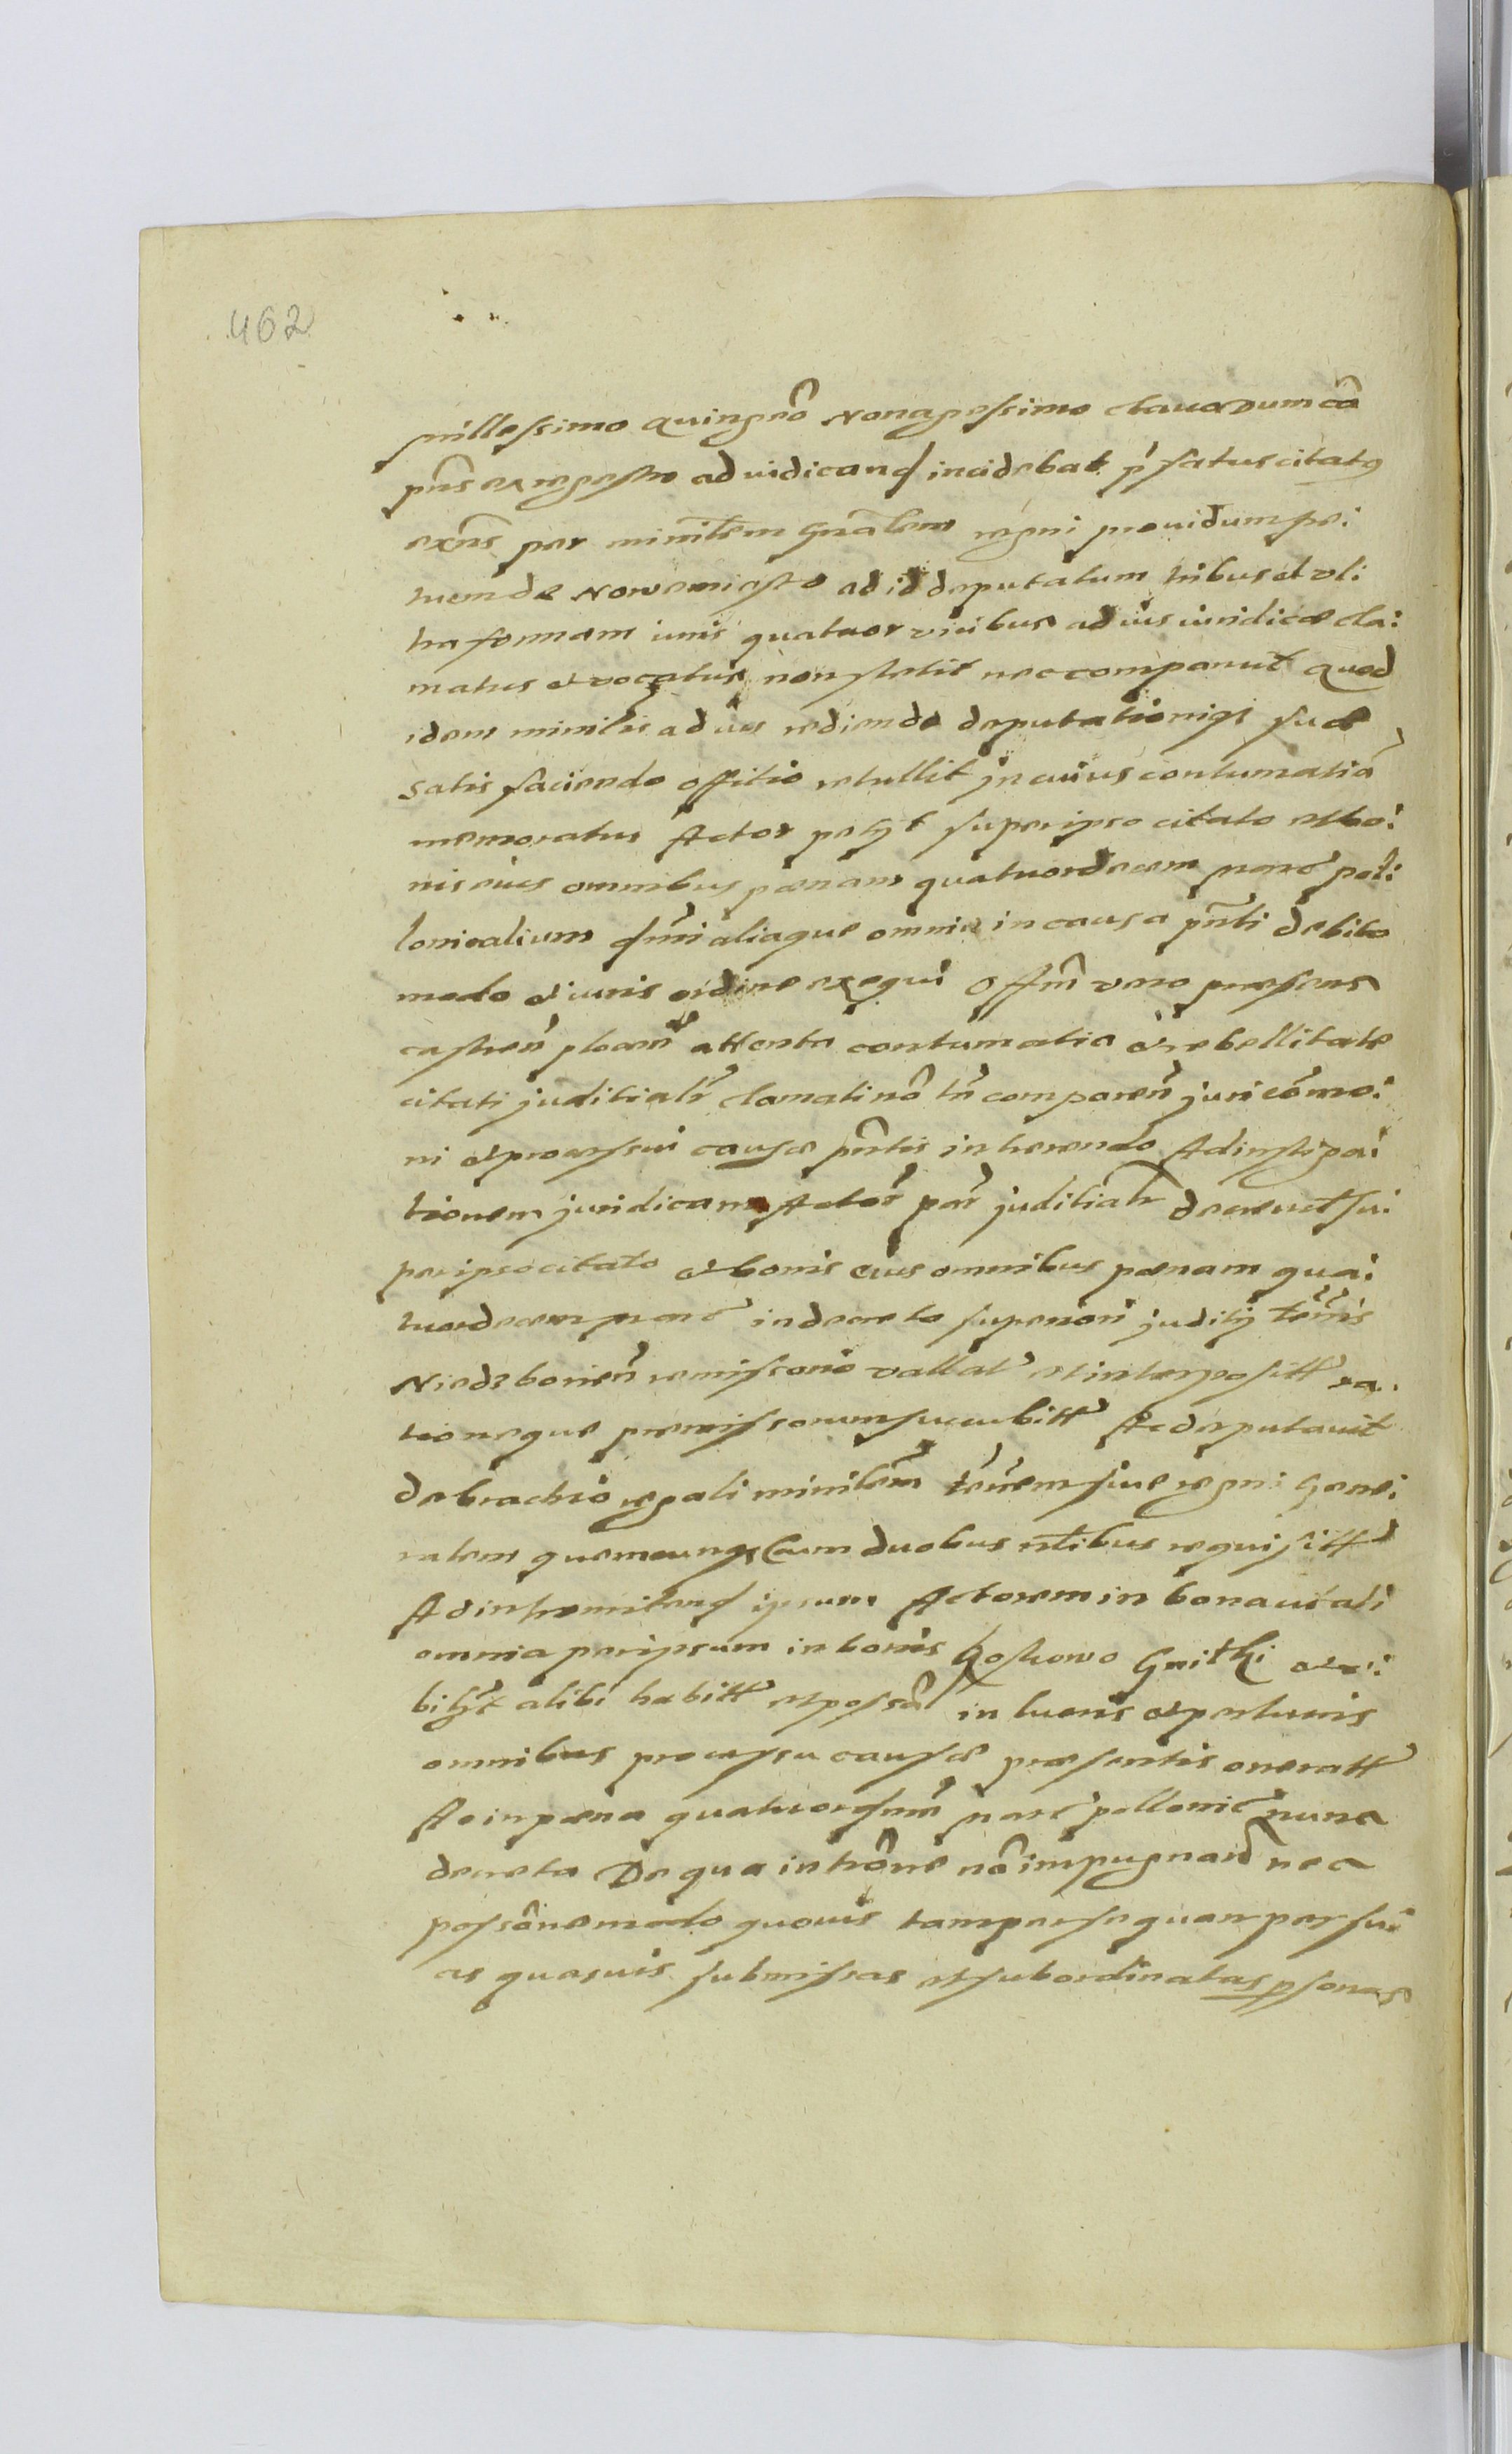 462
millessimo quingnō Nonagessimo octauo dum cā
pn̄s ex regestro ad iudicand incidebat pr̄fatus citatus
exn̄s per minr̄lem Gnālem regni prouidum Pe:
trum de Nowemiasto ad id deputatum tribus et vl:
tra formam iuris quatuor vicibus ad ius iuridice cla:
matus et vocatus non stetit nec comparuit Quod
idem minr̄lis ad ius rediendo deputationiq suæ
satis faciendo offitio retullit In cuius contumatiā
memoratus Actor petyt super ipso citato et bo:
nis eius omnibus pœnam quatuordecem marc pol:
lonicalium aliaque omnia in causa pn̄ti debito
modo et iuris ordine exequi Offm̄ vero præsens
castren̄ plocen̄ attenta contumatia et rebellitate
citati juditialr̄ clamati nō tn̄ comparen̄ juri cōmo:
ni et processui causæ pn̄tis inherendo Ad instiga:
tionem juridicam Actor̄ par̄ juditialr̄ decreuit su:
per ipso citato et bonis eius omnibus pœnam qua:
tuordecem marc in decreto superiori juditij tērris
Niedzborien̄ remissorio vallat et interposit ra:
tioneque præmissorum succubit Ac deputauit
de brachio regali minr̄lem tērrem siue regni Gene:
ralem quemcunq Cum duobus nōbilibus requisitt
Ad intromitend ipsum Actorem in bona citati
omnia per ipsum in bonis Kostrowo Gnithi et v:
bilbt alibi habitt et possā in lucris et perlucris
omnibus processu causæ præsentis oneratt
Ac in pœna quatuordm̄ marc pollonic nunc
decreta De qua intrōne nō impugnand nec
possōnemodo quouis tam per se quam per su:
as quasuis submissas et subordinatas psonas